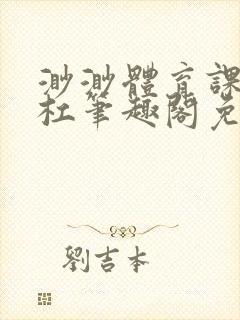 渺渺體育課
杜筆趣閣免
劉吉本